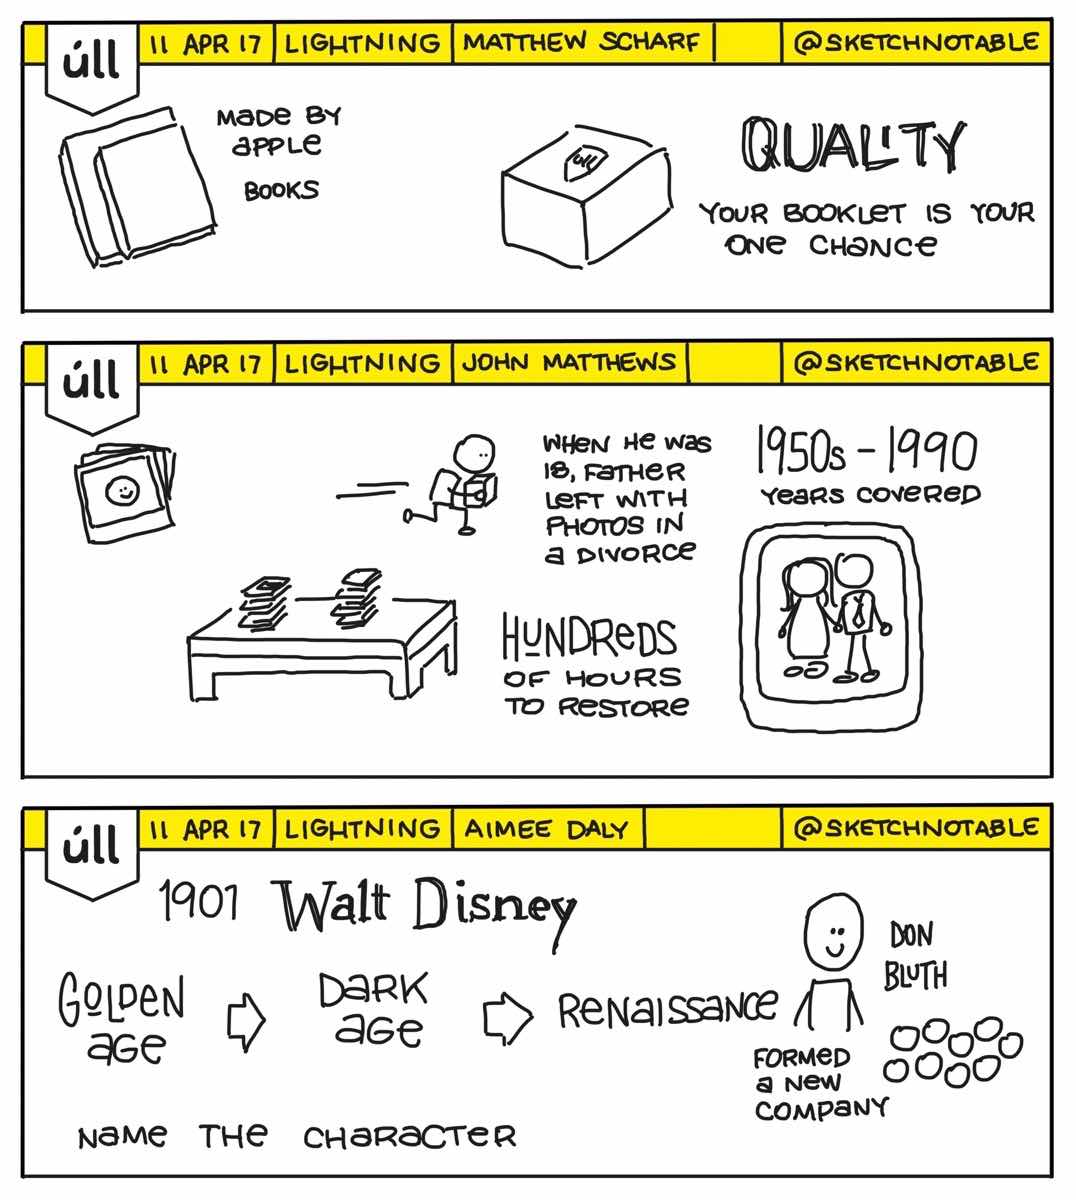 úll
11 APR 17 LIGHTNING MATTHEW SCHARF @SKETCHNOTABLE
MADE BY
APPLE
BOOKS
úll
QUALITY
YOUR BOOKLET IS YOUR
ONE CHANCE
úll
11 APR 17 LIGHTNING JOHN MATTHEWS @SKETCHNOTABLE
WHEN HE WAS
18, FATHER
LEFT WITH
PHOTOS IN
A DIVORCE
1950s - 1990
YEARS COVERED
HUNDREDS
OF HOURS
TO RESTORE
úll
11 APR 17 LIGHTNING AIMEE DALY @SKETCHNOTABLE
1901 Walt Disney
GOLDEN
AGE
DARK
AGE
RENAISSANCE
DON
BLUTH
FORMED
A NEW
COMPANY
NAME THE CHARACTER